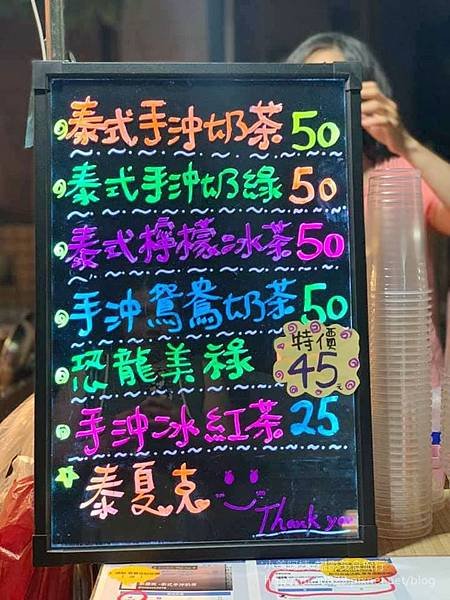 泰式手沖奶茶 50
泰式手沖奶綠 50
泰式檸檬冰茶 50
手沖鴛鴦奶茶 50
恐龍美祿 特價 45元
手沖冰紅茶 25
泰夏克
Thank you